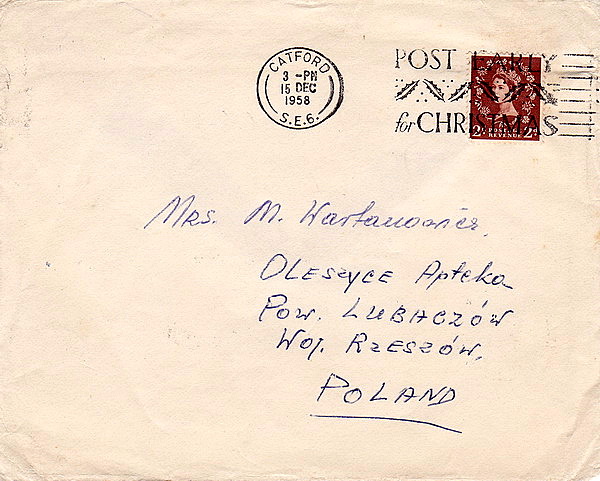 CATFORD
3 - PM
15 DEC
1958
S.E.6.
POST EARLY
for CHRISTMAS
2D POSTAGE REVENUE 2D
Mrs. M. Wartanowicz,
OLESZYCE Apteka
Pow. LUBACZÓW
Woj. RZESZÓW,
POLAND